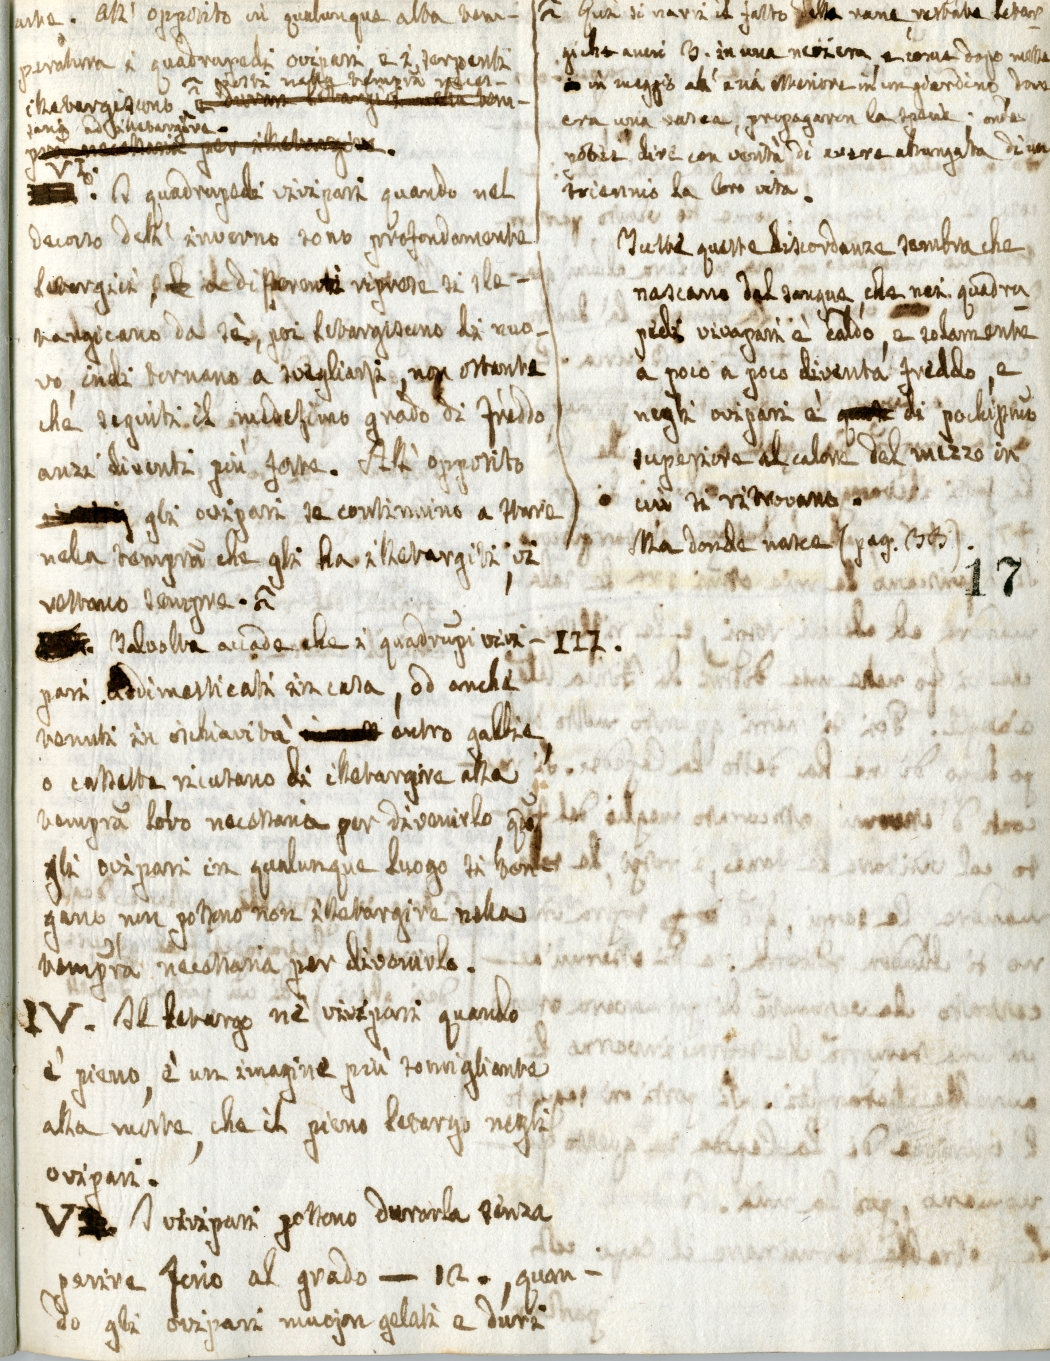 arte. All' opposito in qualunque alta tem-
peratura i quadrupedi ovipari, e i serpenti
posti nella tempra neces-
illetargiscono
saria ad illetargire.
per illetargire.
VI.
I quadrupedi vivipari quando nel
decorso dell' inverno sono profondamente
letargici, in differenti riprese si sle-
targicano da sè, poi letargiscono di nuo-
vo, indi tornano a svegliarsi, non ostante
che seguiti il medesimo grado di freddo,
anzi diventi più forte. All' opposito
gli ovipari se continuino a stare
nela tempra che gli ha illetargiti, vi
restano sempre.
Talvolta accade che i quadrupi vivi-
pari addimesticati in casa, od anche
tenuti in ischiavitù entro gabbie,
o cassette ricusano di illetargire alla
tempra loro necessaria per divenirlo, qdo
gli ovipari in qualunque luogo si ten-
gano non possono non illetargire nella
tempra necessaria per divenirlo.
IV. Il letargo ne' vivipari quando
è pieno, è un imagine più somigliante
alla morte, che il pieno letargo negli
ovipari.
V. I vivipari possono durarla senza
perire fino al grado — 12., quan-
do gli ovipari muojon gelati e duri
Qui si narri il fatto delle rane restate letar-
giche anni 3. in una neviera, e come dopo messe
in mezzo all' aria esteriore in un giardino, dove
era una vasca, propagaron la specie: onde
potei dire con verità di avere allungata di un
triennio la loro vita.
Tutte queste discordanze sembra che
nascano dal sangue che nei quadru
pedi vivapari è caldo, e solamente
a poco a poco diventa freddo, e
negli ovipari è di pochissimo
superiore al calore del mezzo in
cui si ritrovano.
Ma donde nasce (pag.
17
III.